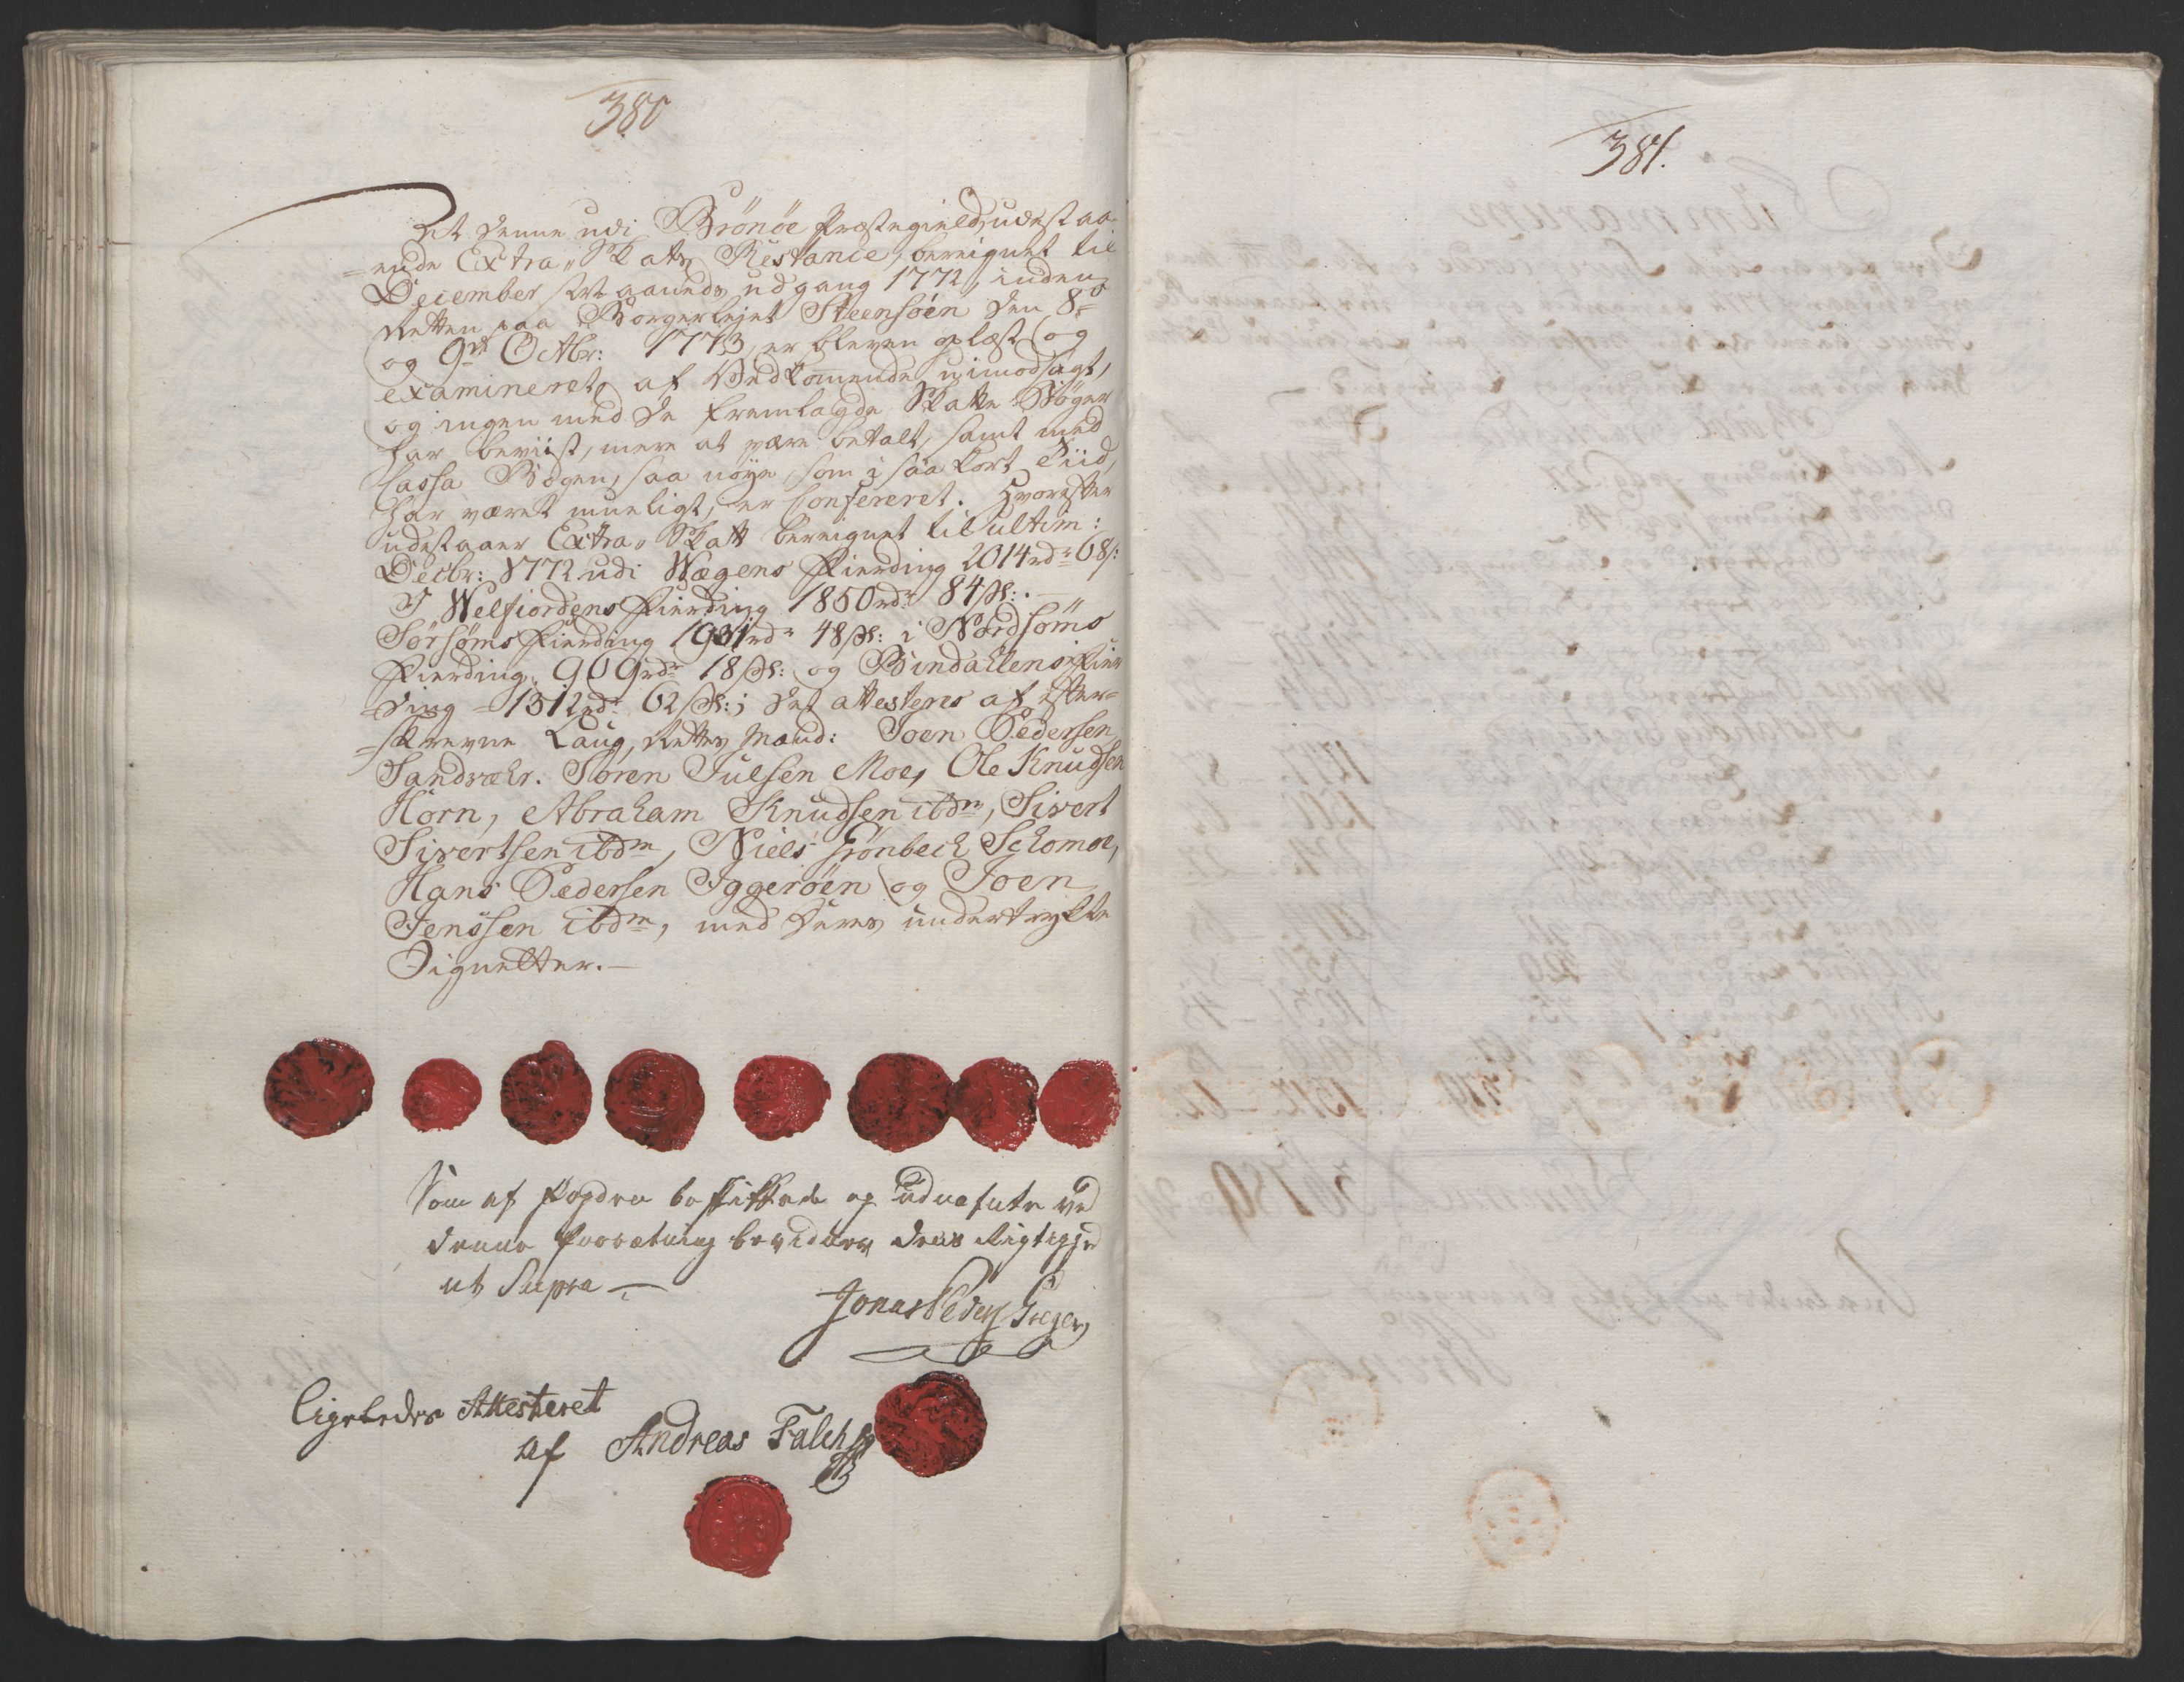 380
At denne udi Brönöe Præstegield, udestaa-
=ende Extra-Skatts Restance, bereignet til
December Maaneds udgang 1772, inden
Retten paa Borgerlejet Steensöen den 8de
og 9de Octbr: 1773, er bleven oplæst og
examineret, af Vedkommende uimodsagt,
og ingen med de fremlagde Skatte Bøger
har beviist, mere at være betalt, samt med
Cassa Bogen, saa nøye, som i saa kort Tiid,
har været mueligt, er Confereret. Hvorefter
udestaaer Extra-Skatt bereignet til ultim:
Decbr: 1772 udi Wægens Fierding 2014rdr 68s:
I Welfiordens Fierding 1850rdr 84s:.
Sörsöms Fierding 1931rdr 48s: i Nordsöms
Fierding, 909rdr 18s: og Bindallens Fier-
=ding 1312rdr 62s:; det attesteres af efter=
=skrevne Laug, Rettes Mænd: Joen Pedersen
Sandvær. Søren Julsen Moe, Ole Knudsen
Horn, Abraham Knudsen ibdm, Sivert
Sivertsen ibdm, Niels Grönbech Schomoe,
Hans Pedersen Iggeröen og Joen
Jenssen ibdm, med deres undertrykte
Signetter.—
Som af Fogden beskikkede og udnæfnte ved
denne Forretning bevidner dens Rigtighed
ut Supra —
Jonas Peders
Ligeledes Attesteret
af Andreas Falch
381.